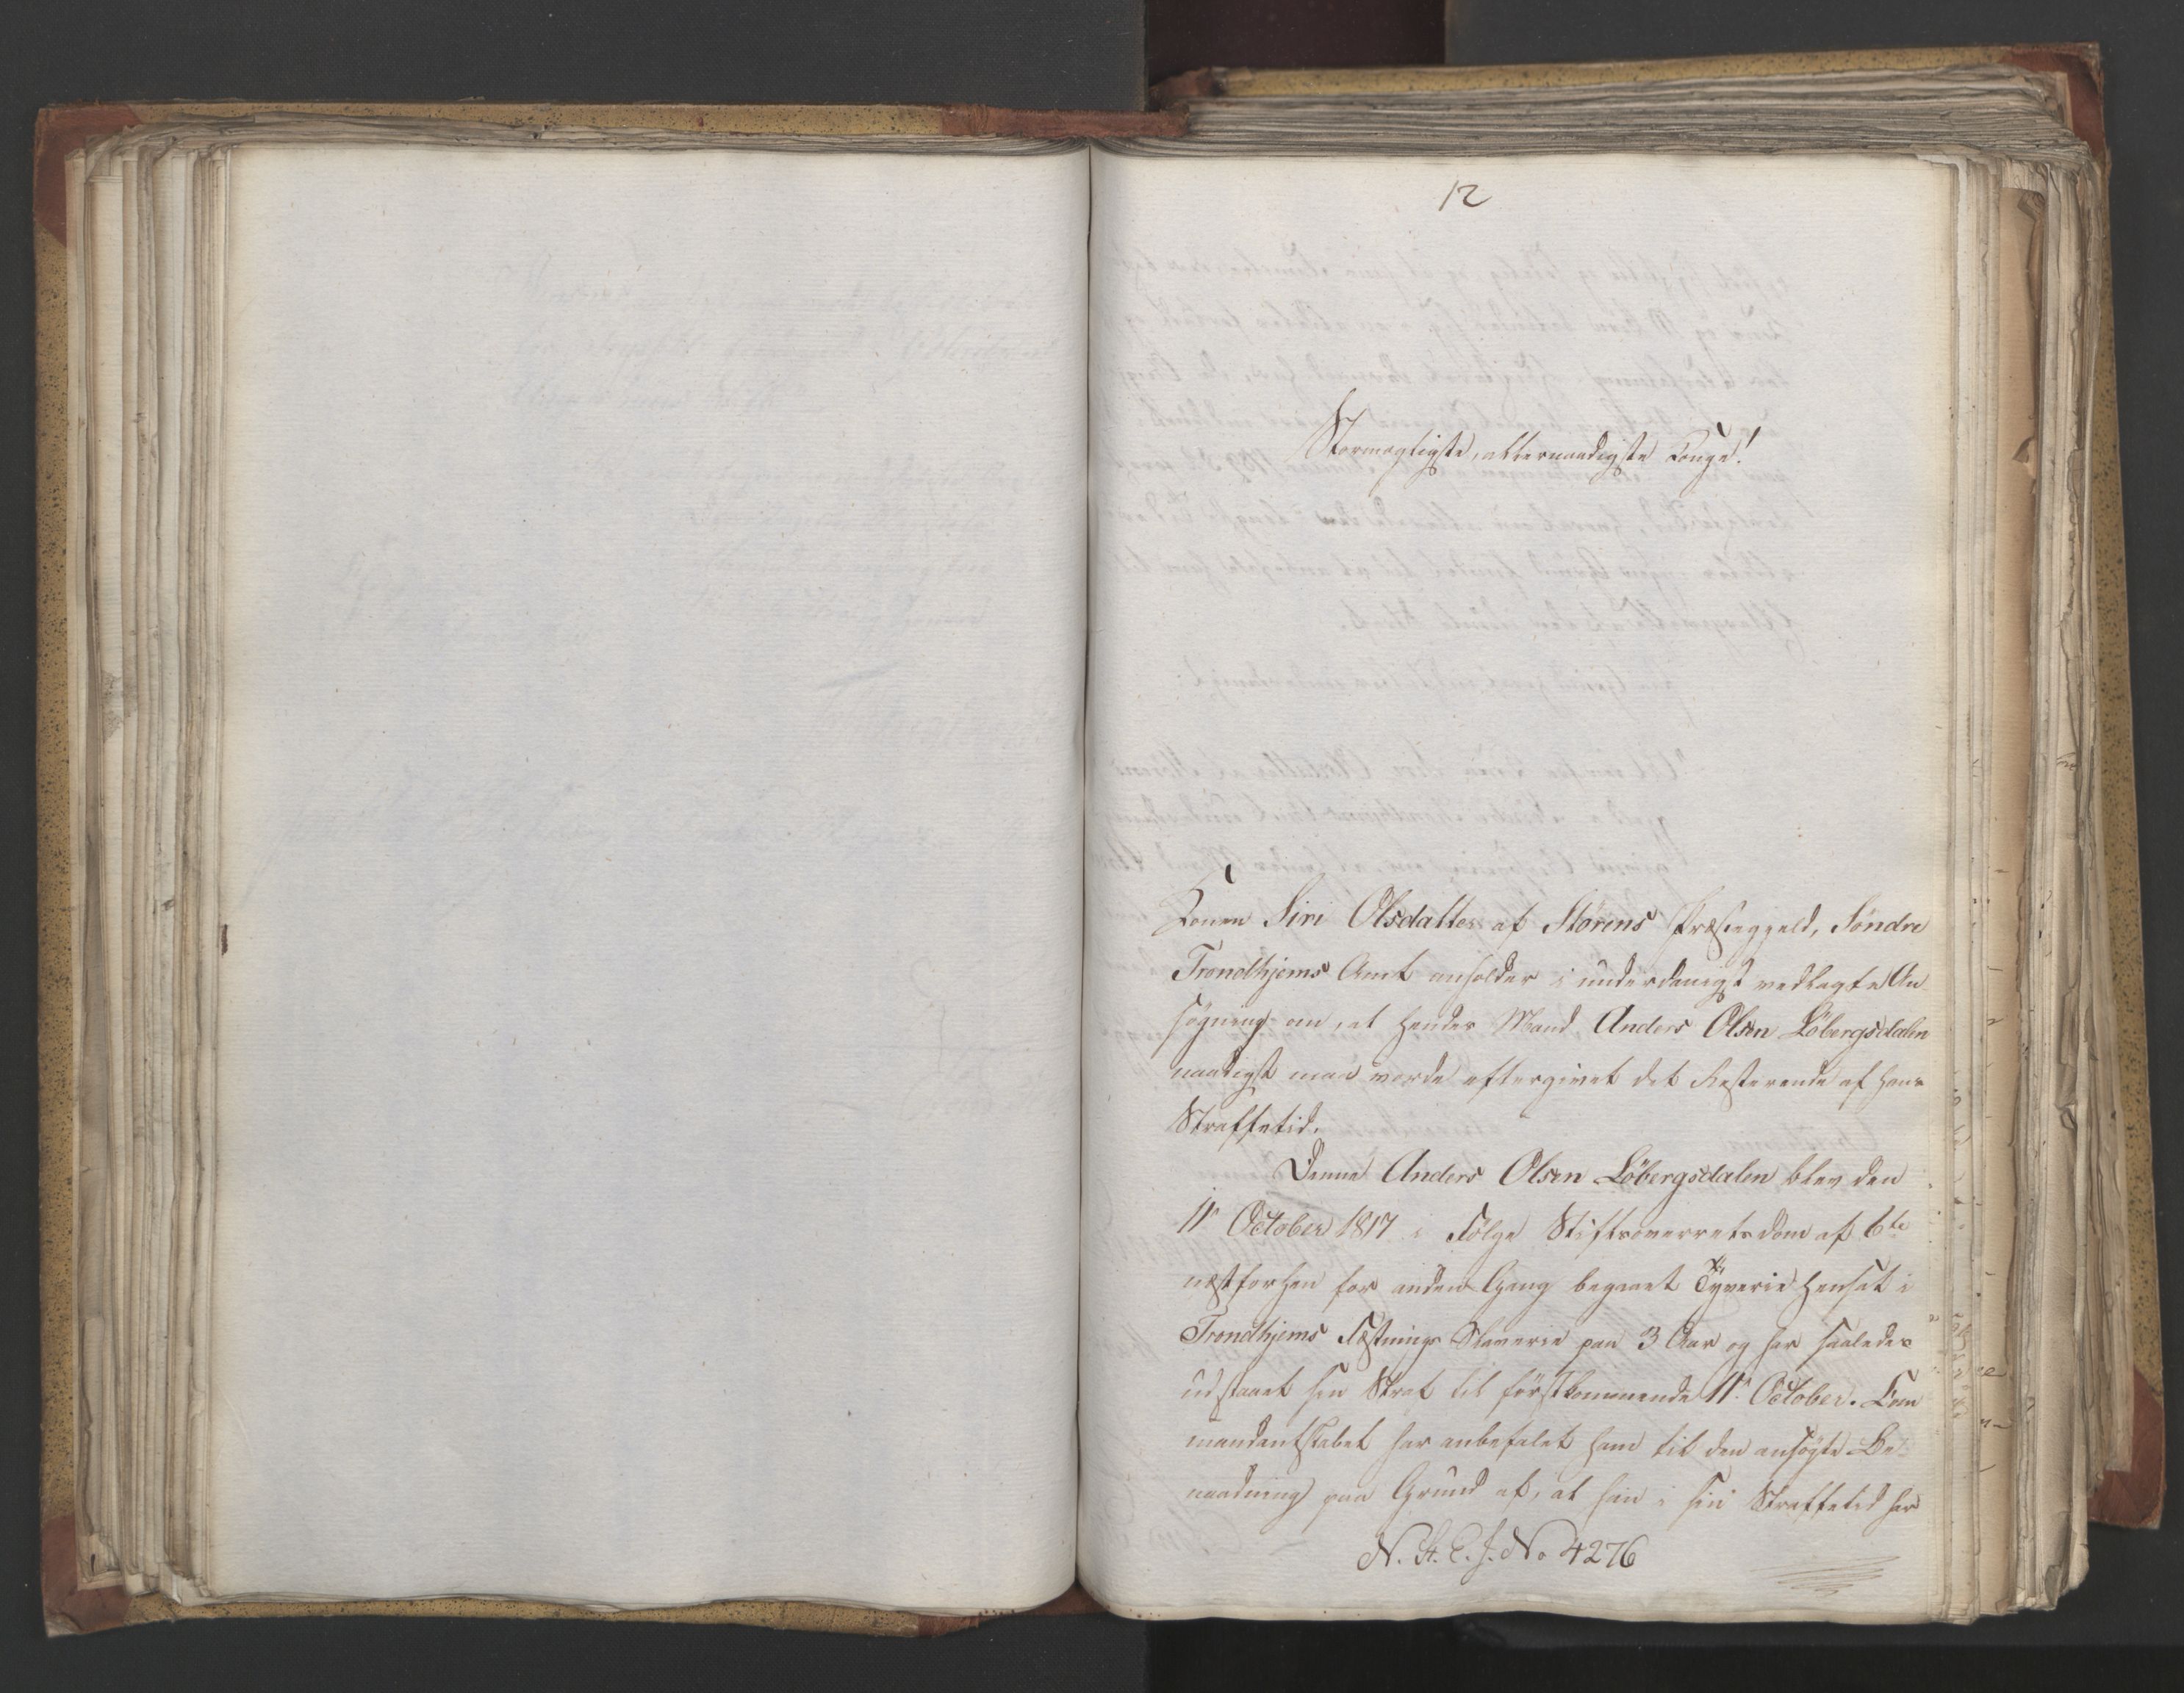 12
Stormægtigste, allernaadigste Konge!
Konen Siri Olsdatter af Störens Præstegjeld, Söndre
Trondhjems Amt anholder i underdanigst vedlagte An
sögning om, at hendes Mand Anders Olsen Löbergsdalen
naadigst maa vorde eftergivet det Resterende af hans
Straffetid.
Denne Anders Olsen Löbergsdalen blev den
11te October 1817 i Fölge Stiftsoverretsdom af 6te
næstforhen for anden Gang begaaet Tyverie hensat i
Trondhjems Fæstnings Slaverie paa 3 Aar og har saaledes
udstaaet sin Straf til förstkommende 11te October. Com
mandantskabet har anbefalet ham til den ansögte Be
naadning paa Grund af, at han i sin Straffetid har
N. St. E. J. No 4276